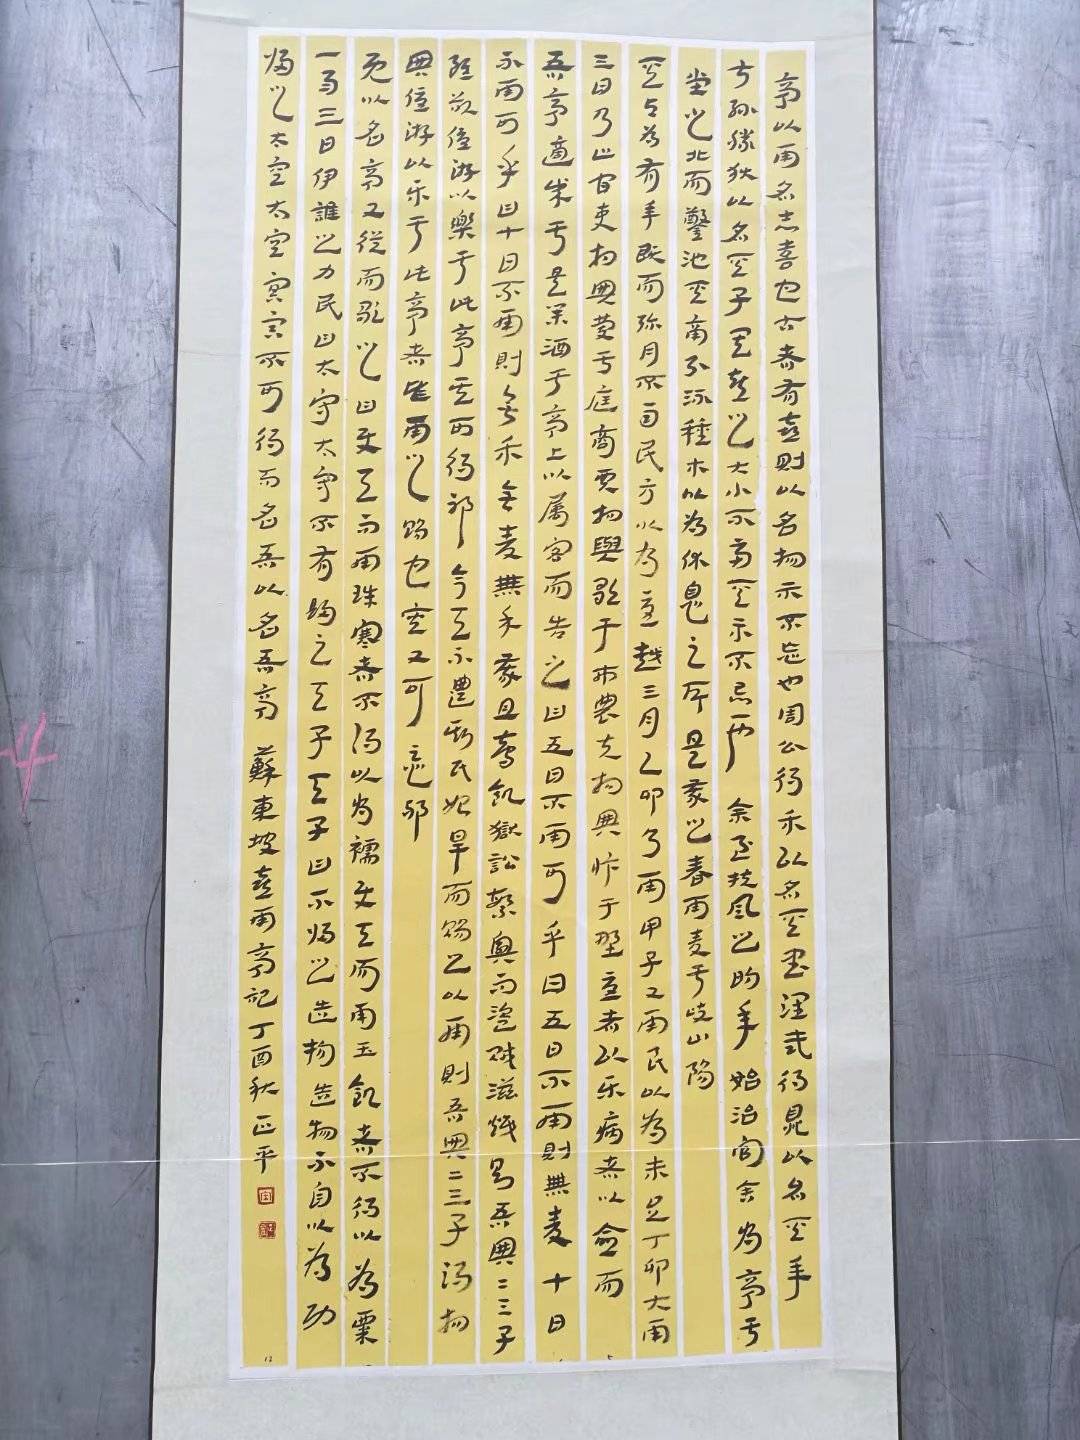 亭以雨名志喜也古者有喜則以名物示不忘也周公得禾以名其書漢武得鼎以名其年
叔孫勝狄以名其子其喜之大小不齊其示不忘一也 余至扶風之明年始治官舍為亭于
堂之北而鑿池其南引流種木以為休息之所是歲之春雨麦于岐山陽
其占為有年既而弥月不雨民方以為憂越三月乙卯乃雨甲子又雨民以為未足丁卯大雨
三日乃止官吏相與慶于庭商賈相與歌于市農夫相與忭于野憂者以乐病者以愈而
吾亭適成于是举酒于亭上以属客而告之曰五日不雨可乎曰五日不雨則無麦十日
不雨可乎曰十日不雨則無禾無麦無禾歲且荐飢獄訟繁興而盗賊滋熾則吾與二三子
雖欲優游以樂于此亭其可得耶今天不遺斯民始旱而賜之以雨則吾與二三子得相
與優游以乐于此亭者皆雨之賜也其又可忘邪
既以名亭又從而歌之曰使天而雨珠寒者不得以為襦使天而雨玉飢者不得以為粟
一雨三日伊誰之力民曰太守太守不有歸之天子天子曰不歸之造物造物不自以為功
歸之太空太空冥冥不可得而名吾以名吾亭 蘇東坡喜雨亭記丁酉秋正平